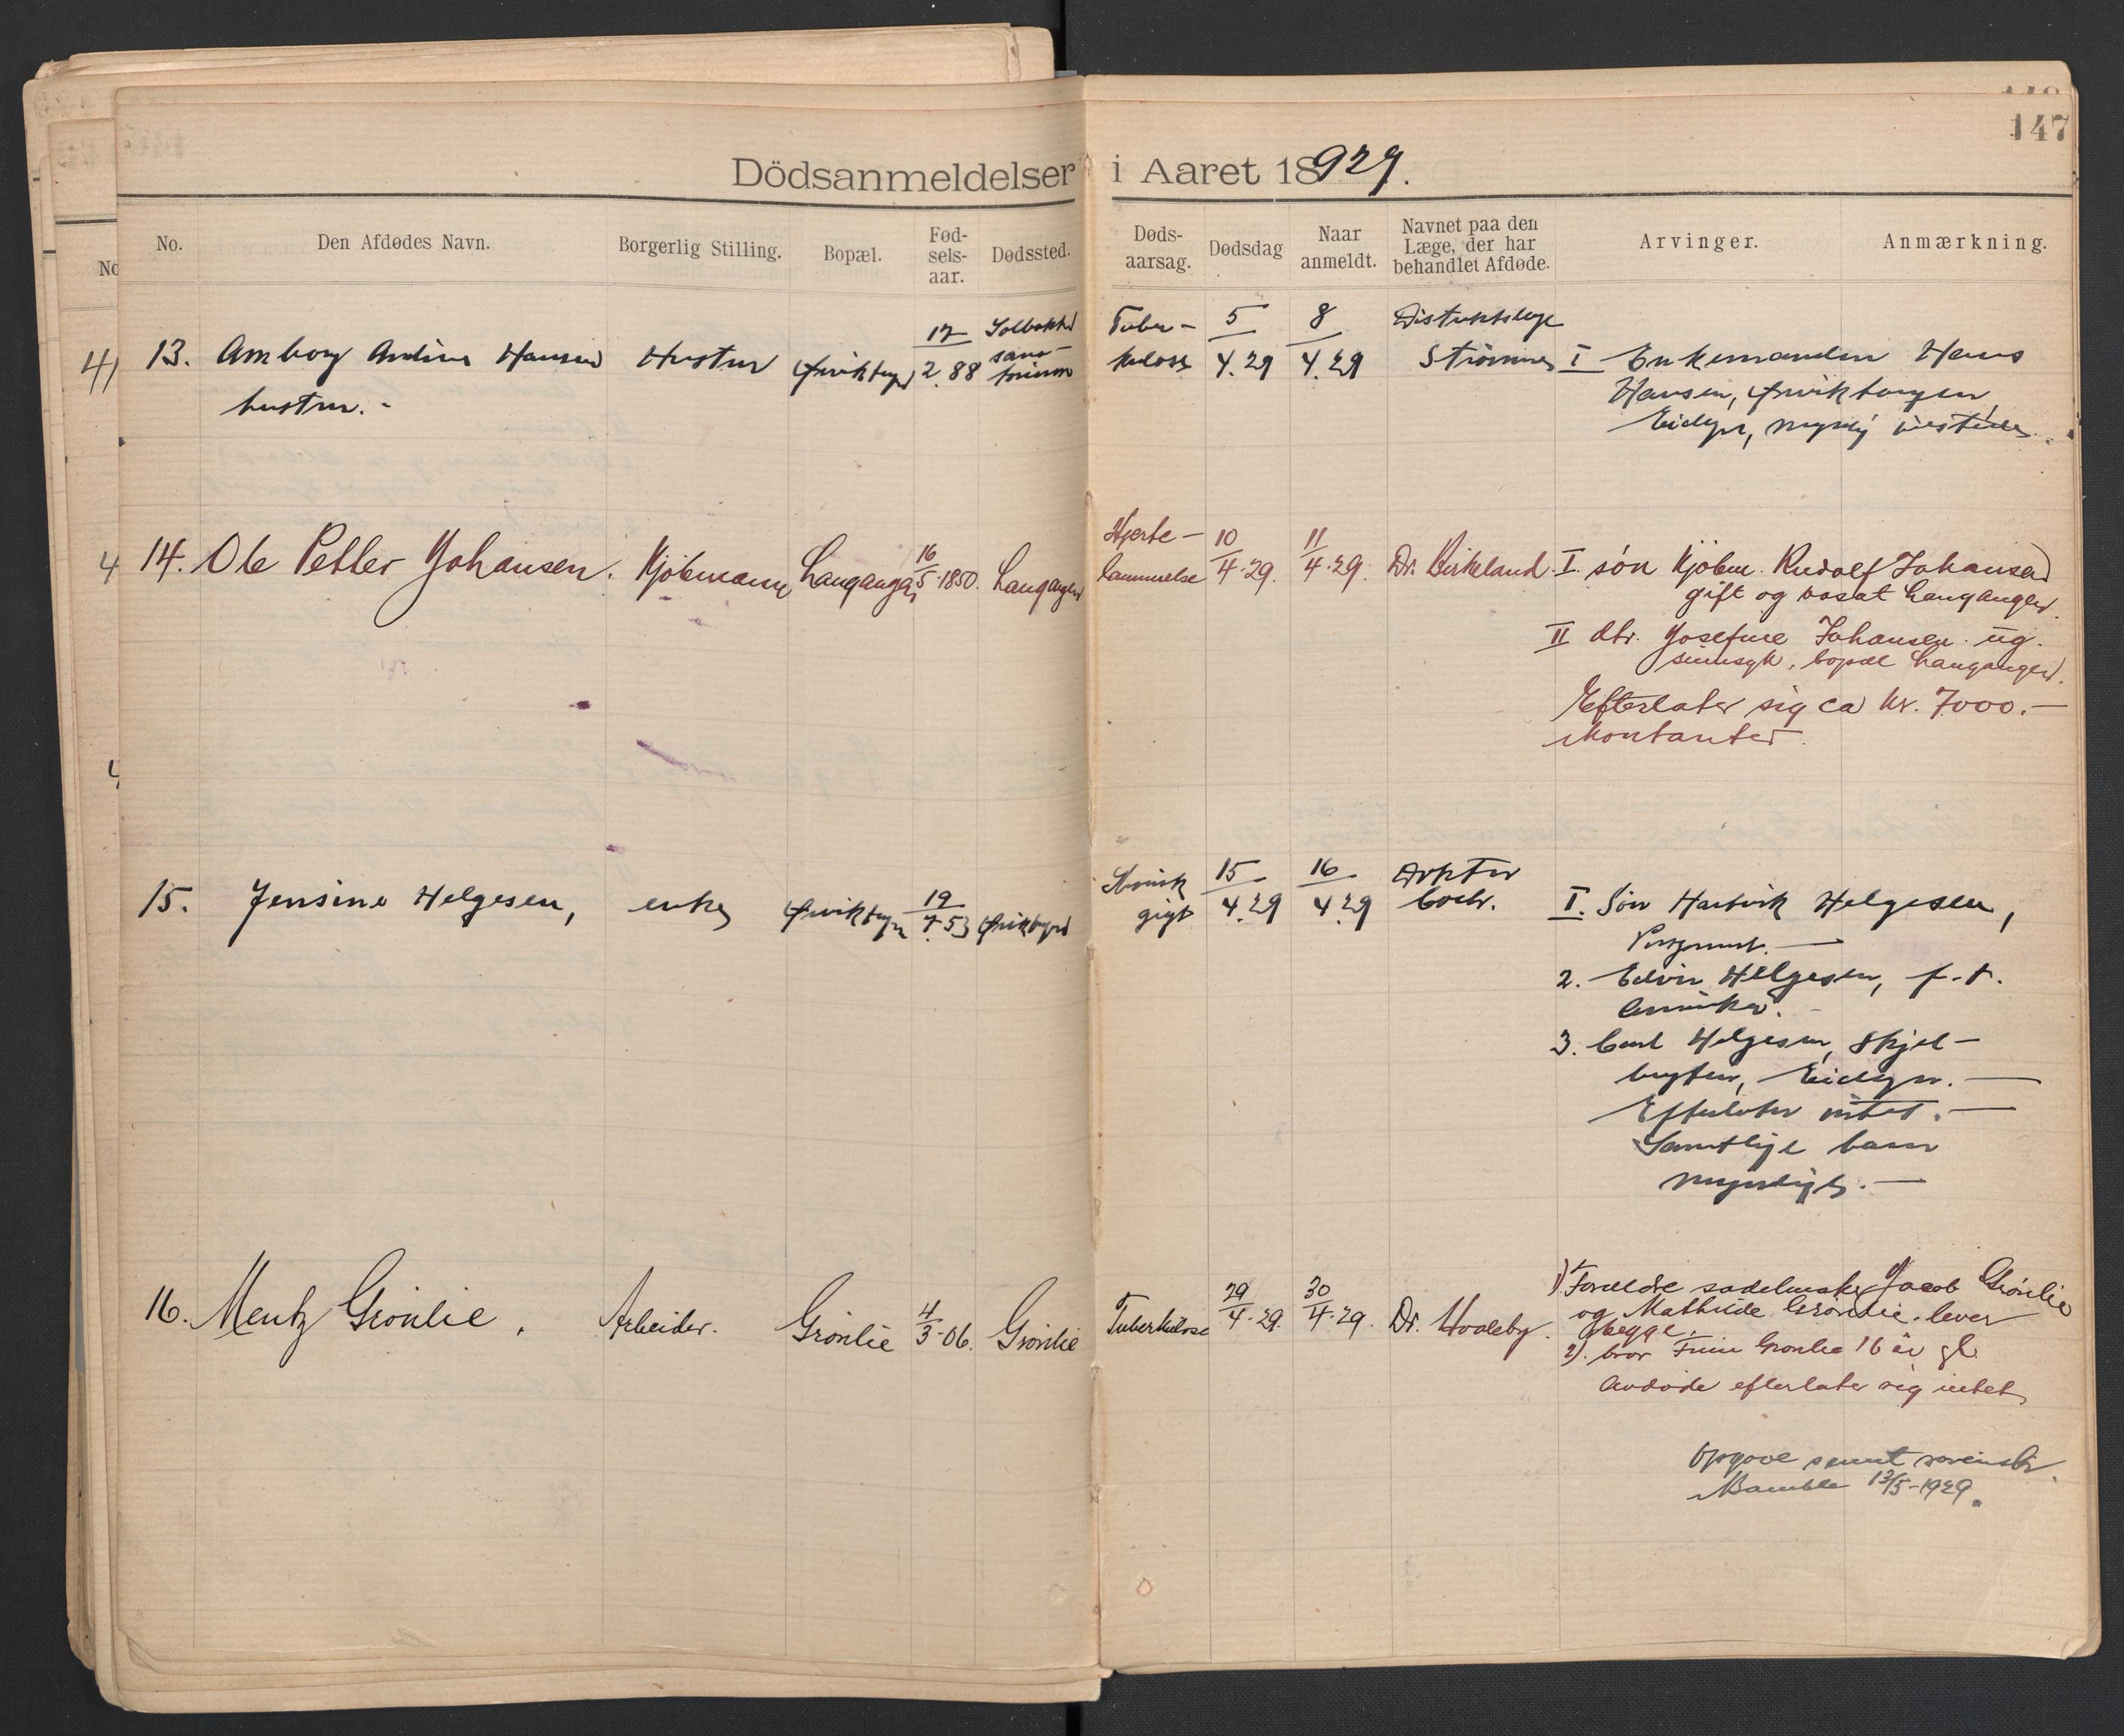 147
Dödsanmeldelser i Aaret 18929.
No. Den Afdødes Navn. Borgerlig Stilling. Bopæl. Fød-sels-aar. Dødssted. Døds-aarsag. Dødsdag Naar anmeldt. Navnet paa den Læge, der har behandlet Afdøde. Arvinger. Anmærkning.
13. Andine Hansen Hustru 17/2.88 sana-
hustru.-
Tuber-
kulose 5/4.29 8/4.29 Distriktslege
Strömme I Enkemanden Hans
Hansen,
Eidgr, myndig
14. Ole Petter Johansen. Kjöbmann Langangen 16/5.1850. Langangen
Hjerte-
lammelse 10/4.29. 11/4.29. Dr. Birkeland I. sön Kjöbm. Rudolf Johansen
gift og bosat Langangen.
II dtr. Josefine Johansen. ug.
sinnsyk, bopæl Langangen.
Efterlater sig ca kr. 7000.-
Kontanter.
15. Jensine Helgesen, enke 19/7.53
Kronisk
gigt 15/4.29 16/4.29 Doktor
I. Sön Hartvik Helgesen,
2. Edvin Helgesen, f.t.
Amerika.
3. Carl Helgesen, Skjel-
Eidgr.
Efterlater intet.
Samtlige barn
myndige.
16. Mentz Grönlie. Arbeider. Grönlie 4/3.06. Grönlie
Tuberkulose 29/4.29. 30/4.29. Dr. Hvaleby.
1) Foreldre sadelmaker Jacob Grönlie
og Mathilde Grönlie. lever
begge.
2). bror Finn Grönlie 16 år gl.
Avdøde efterlater sig intet
Opgave sennt sorenskr.
Bamble 13/5-1929.